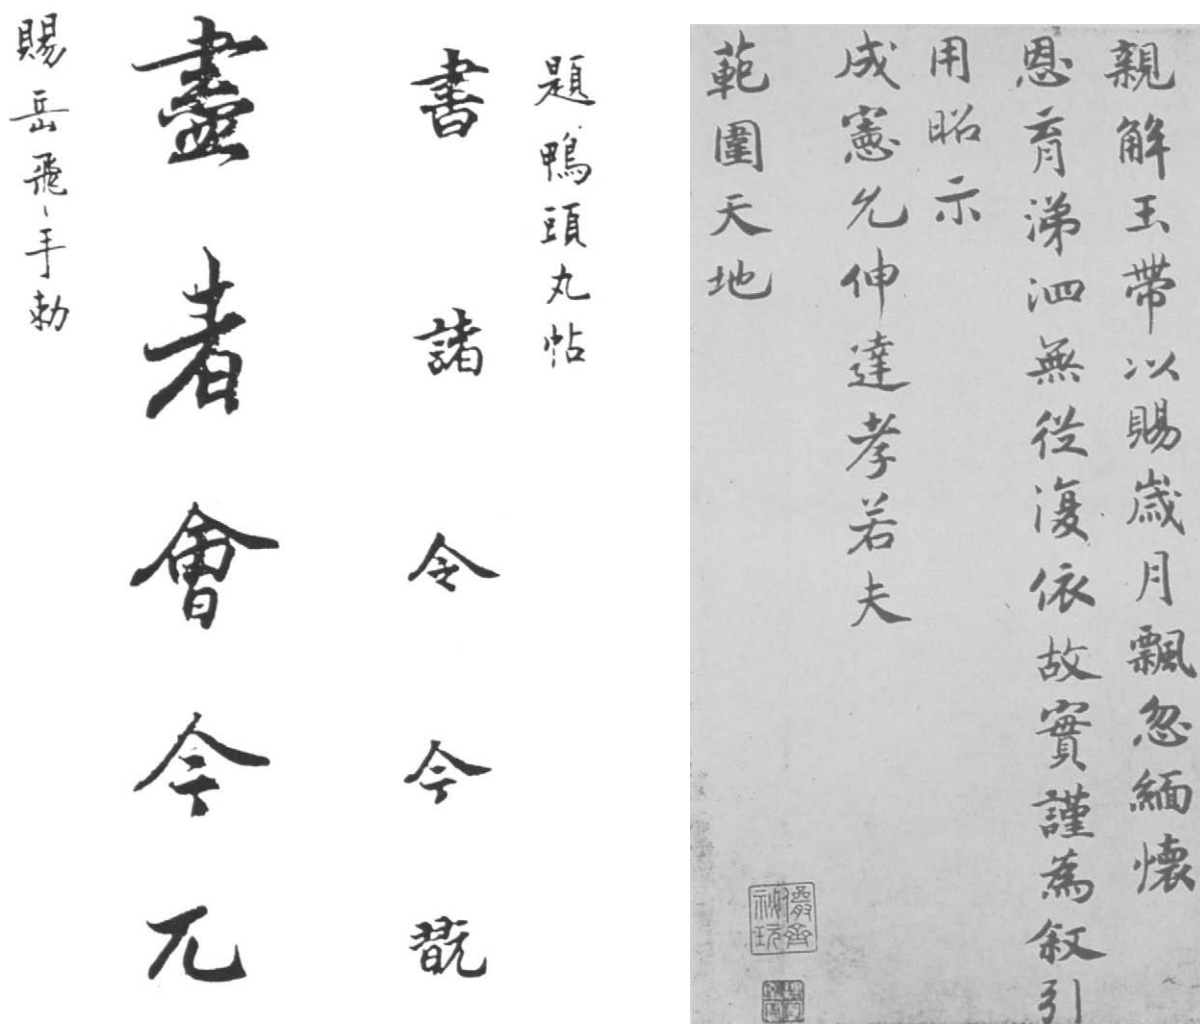 親解玉帶以賜歲月飄忽緬懷
恩育涕泗無從復依故實謹為叙引
用昭示
成憲允伸達孝若夫
範圍天地
題鴨頭丸帖
書諸令今翫
盡者會今兀
賜岳飛手勅